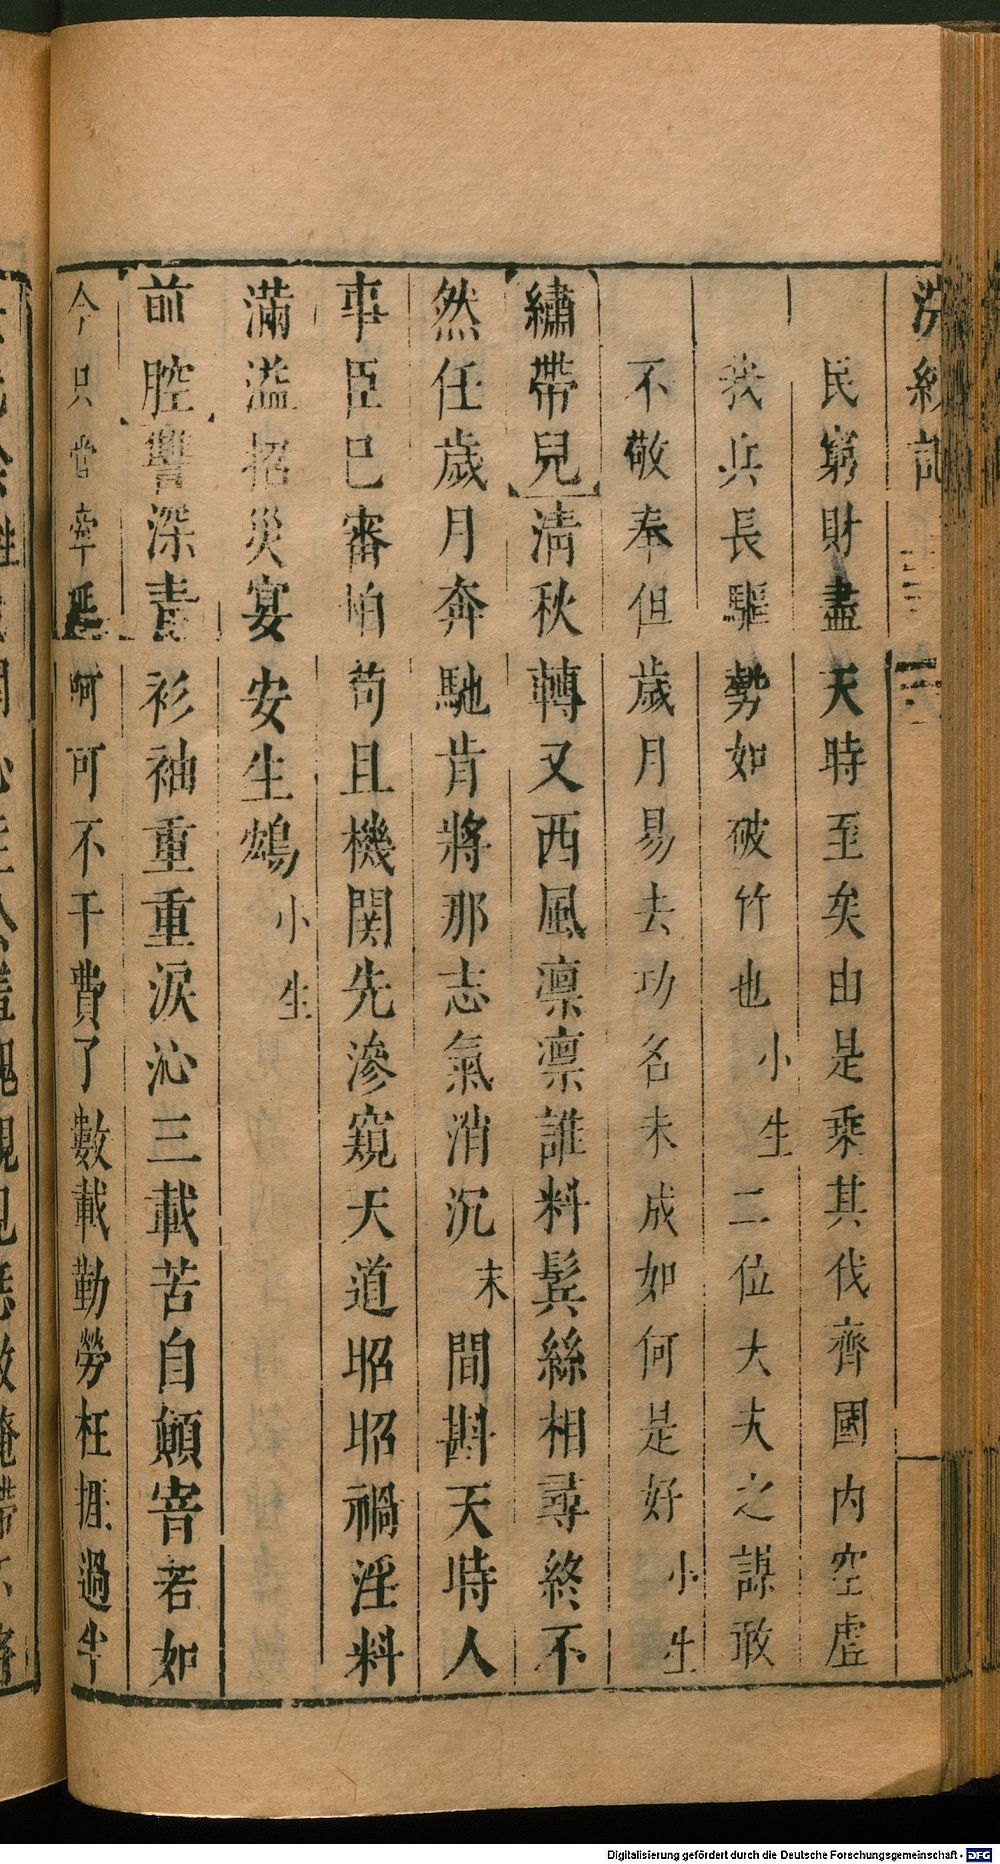 浣紗記
民窮財盡天時至矣由是乘其伐齊國內空虛
我兵長驅勢如破竹也小生二位大夫之謀敢
不敬奉但歲月易去功名未成如何是好小生
繡帶兒清秋轉又西風凛凛誰料鬂絲相尋終不
然任歲月奔馳肯將那志氣消沉末間斟天時人
事臣已審怕苟且機関先滲窺天道昭昭禍淫料
滿溢招災宴安生鴆小生
前腔讐深青衫袖重重淚沁三載苦自顛窨若如
今只管牽延呵可不干費了數載勤勞枉捱過半
Digitalisierung gefördert durch die Deutsche Forschungsgemeinschaft - DFG